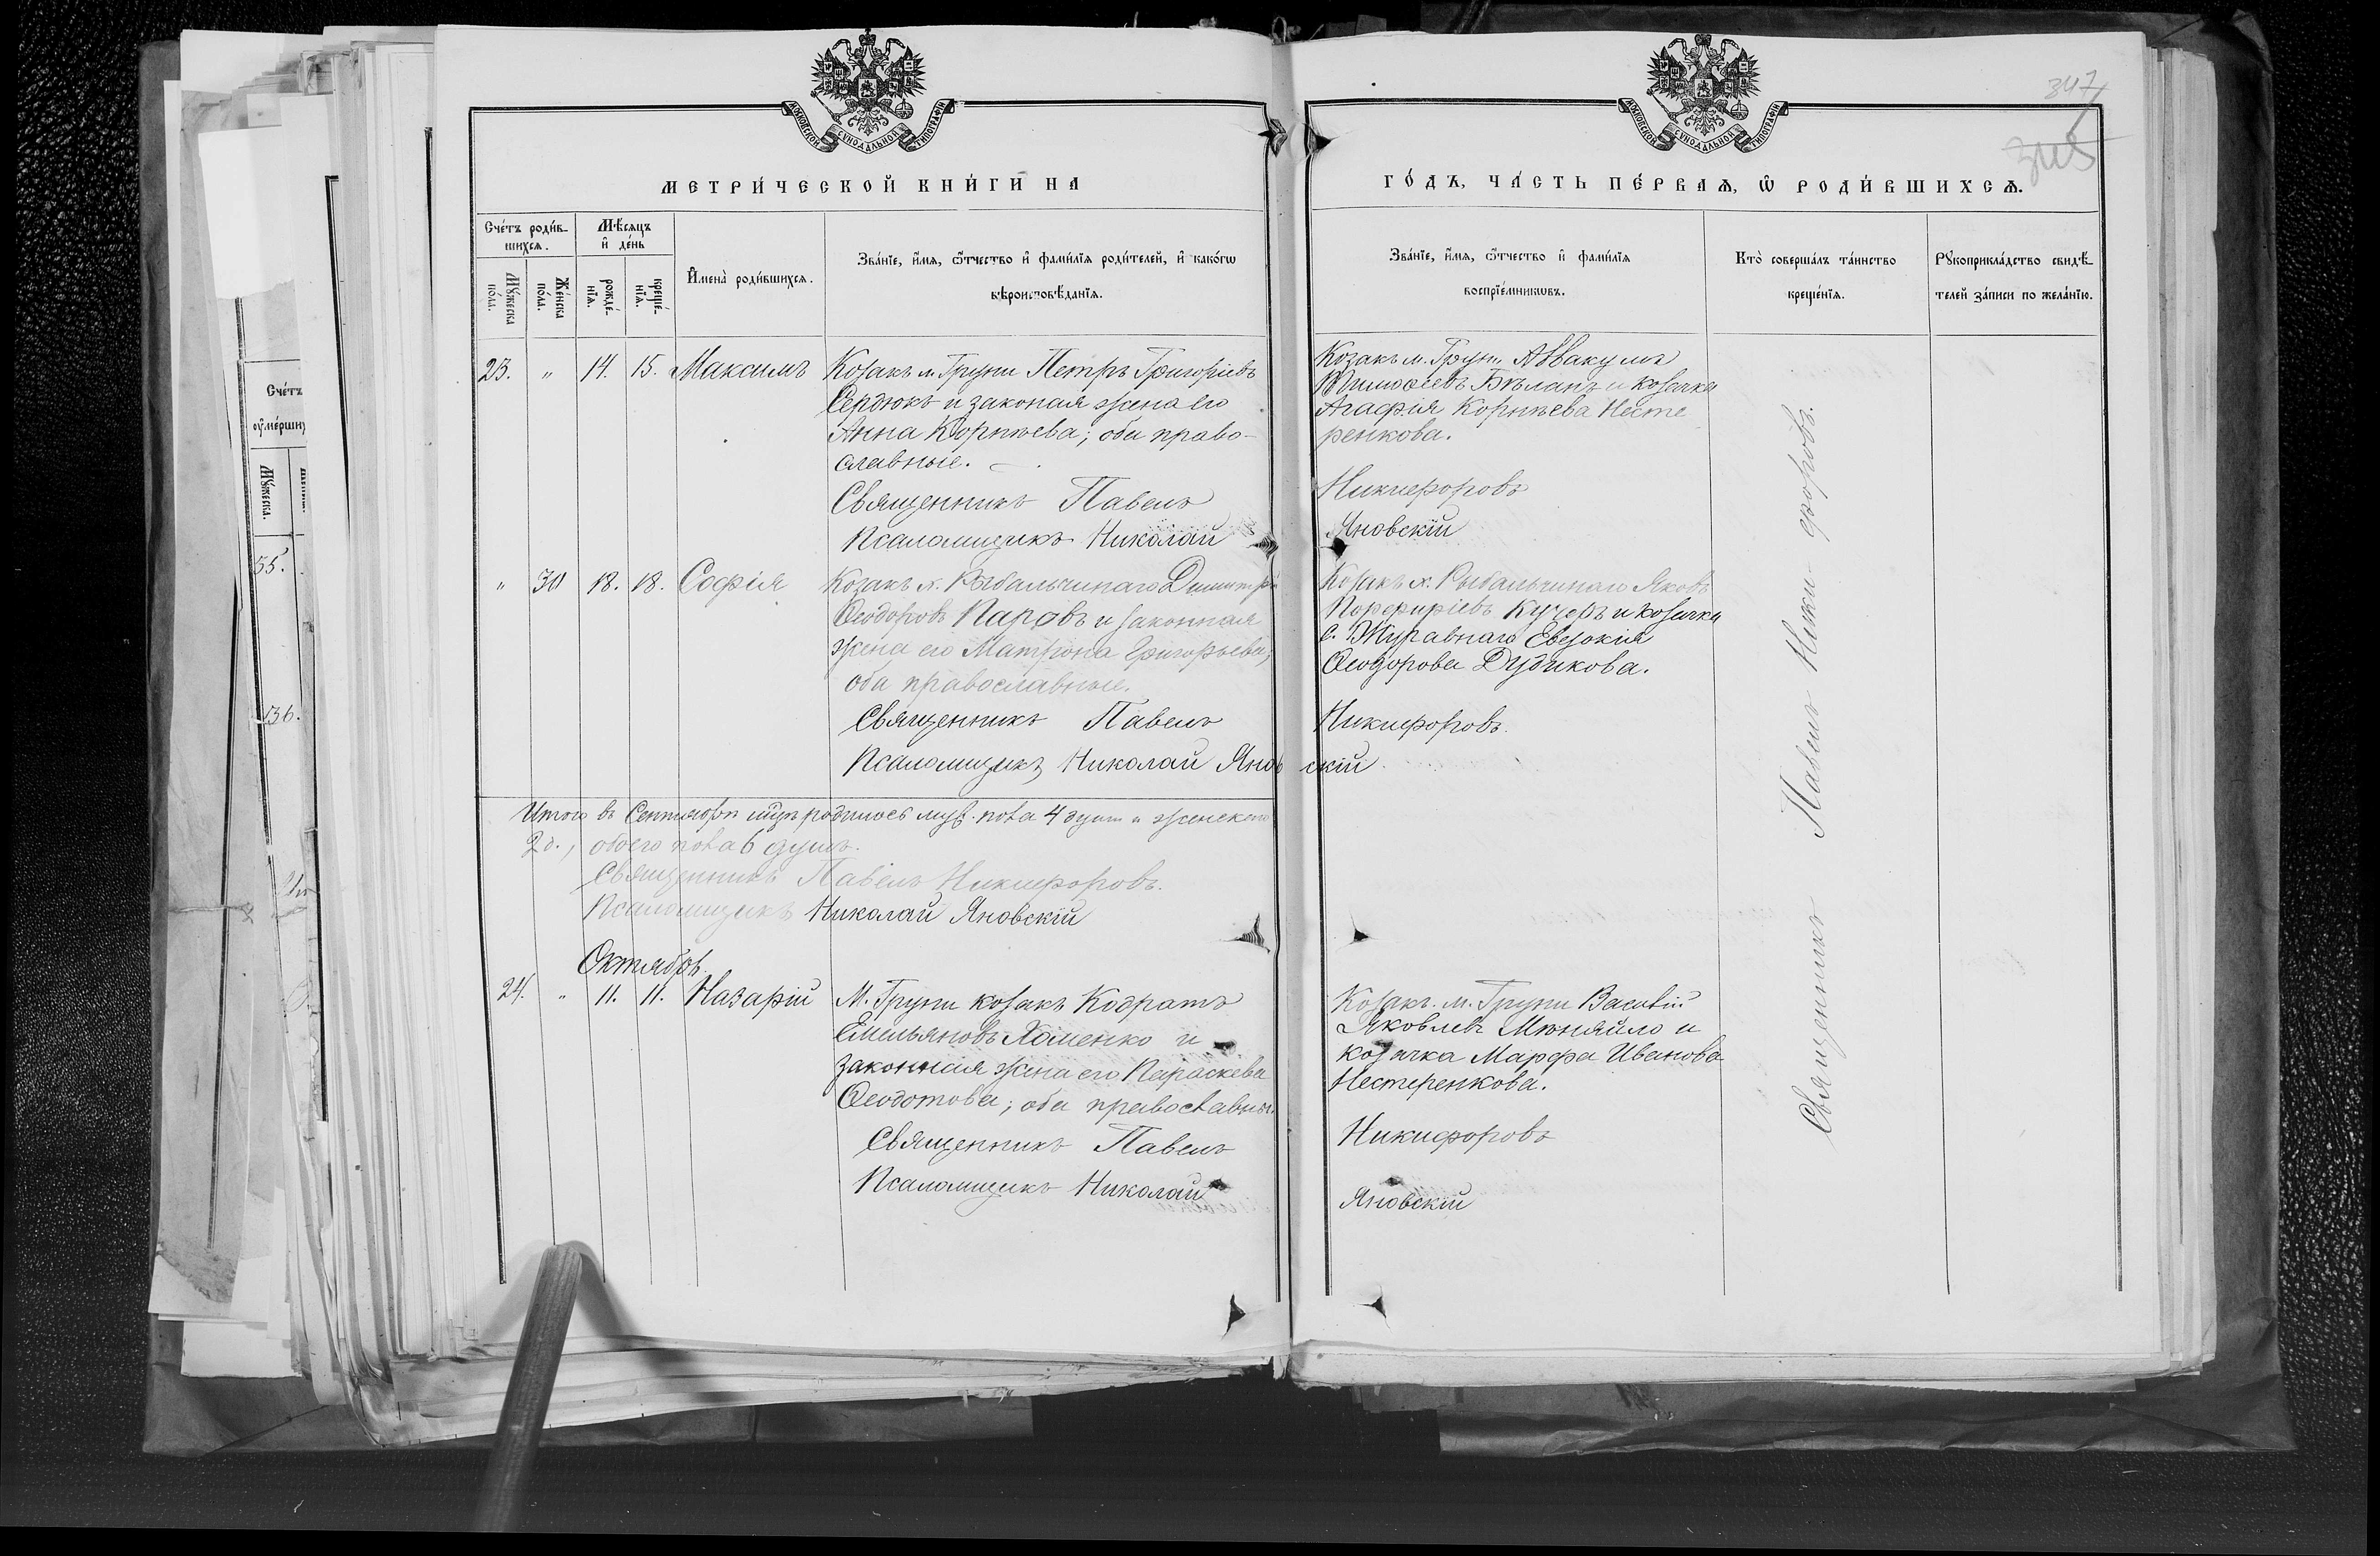 МОСКОВСКОЙ СѴНОДАЛЬНОЙ ТИПОГРАФІИ
МЕТРИ́ЧЕСКОЙ КНИ́ГИ НА
Сче́тъ роди́в-
шихсѧ.
Мѣ́сѧцъ
и҆ де́нь
Мꙋ́жеска
по́ла.
Же́нска
по́ла.
рожде́-
нїѧ.
креще́-
нїѧ.
И҆мена̀ роди́вшихсѧ.
Зва́нїе, и҆́мѧ, ѻ҆́тчество и҆ фами́лїѧ роди́телей, и҆ како́гѡ
вѣроисповѣ́данїѧ.
23. " 14. 15. Максимъ Козакъ м. Груни Петръ Григоріевъ
Сердюкъ и законая жена его
Анна Корнѣева; оба право-
славные.
Священникъ Павелъ
Псаломщикъ Николай
" 30 18. 18. Софія Козакъ х. Рыбальчинаго Димитрій
Ѳеодоровъ Паровъ и законная
жена его Матрона Григорьева;
оба православные.
Священникъ Павелъ
Псаломщикъ Николай Янов
Итого въ Сентябрѣ м̃цѣ родилось муж. пола 4 душ и женскаго
2 д., обоего пола 6 душъ.
Священникъ Павелъ Никифоровъ.
Псаломщикъ Николай Яновскій
Октябрь.
24. " 11. 11. Назарій М. Груни козакъ Кодратъ
Емельяновъ Хоменко и
законная жена его Параскева
Ѳеодотова; оба православны.
Священникъ Павелъ
Псаломщикъ Николай
347
МОСКОВСКОЙ СѴНОДАЛЬНОЙ ТИПОГРАФІИ
ГО́ДЪ, ЧА́СТЬ ПЕ́РВАѦ, Ѽ РОДИ́ВШИХСѦ.
Зва́нїе, и҆́мѧ, ѻ҆́тчество и҆ фами́лїѧ
воспрїе́мникѡвъ.
Кто̀ соверша́лъ та́инство
креще́нїѧ.
Рꙋкоприкла́дство свидѣ́-
телей за́писи по жела́нїю.
Козакъ м. Груни Аввакумъ
Тимоѳеевъ Бѣланъ и козачка
Агафія Корнѣева Несте
ренкова.
Никифоровъ
Яновскій
Козакъ х. Рыбальчинаго Яковъ
Порфиріевъ Кучеръ и козачка
с. Журавнаго Евдокія
Ѳеодорова Дудикова.
Никифоровъ.
скій
Козакъ м. Груни Василій
Яковлевъ Мѣняйло и
козачка Марфа Иванова
Нестеренкова.
Никифоровъ
Яновскій
Священникъ Павелъ Никифоровъ.
Сче́тъ
ᲂу҆ме́рши
Мꙋ́жеска.
55.
136.